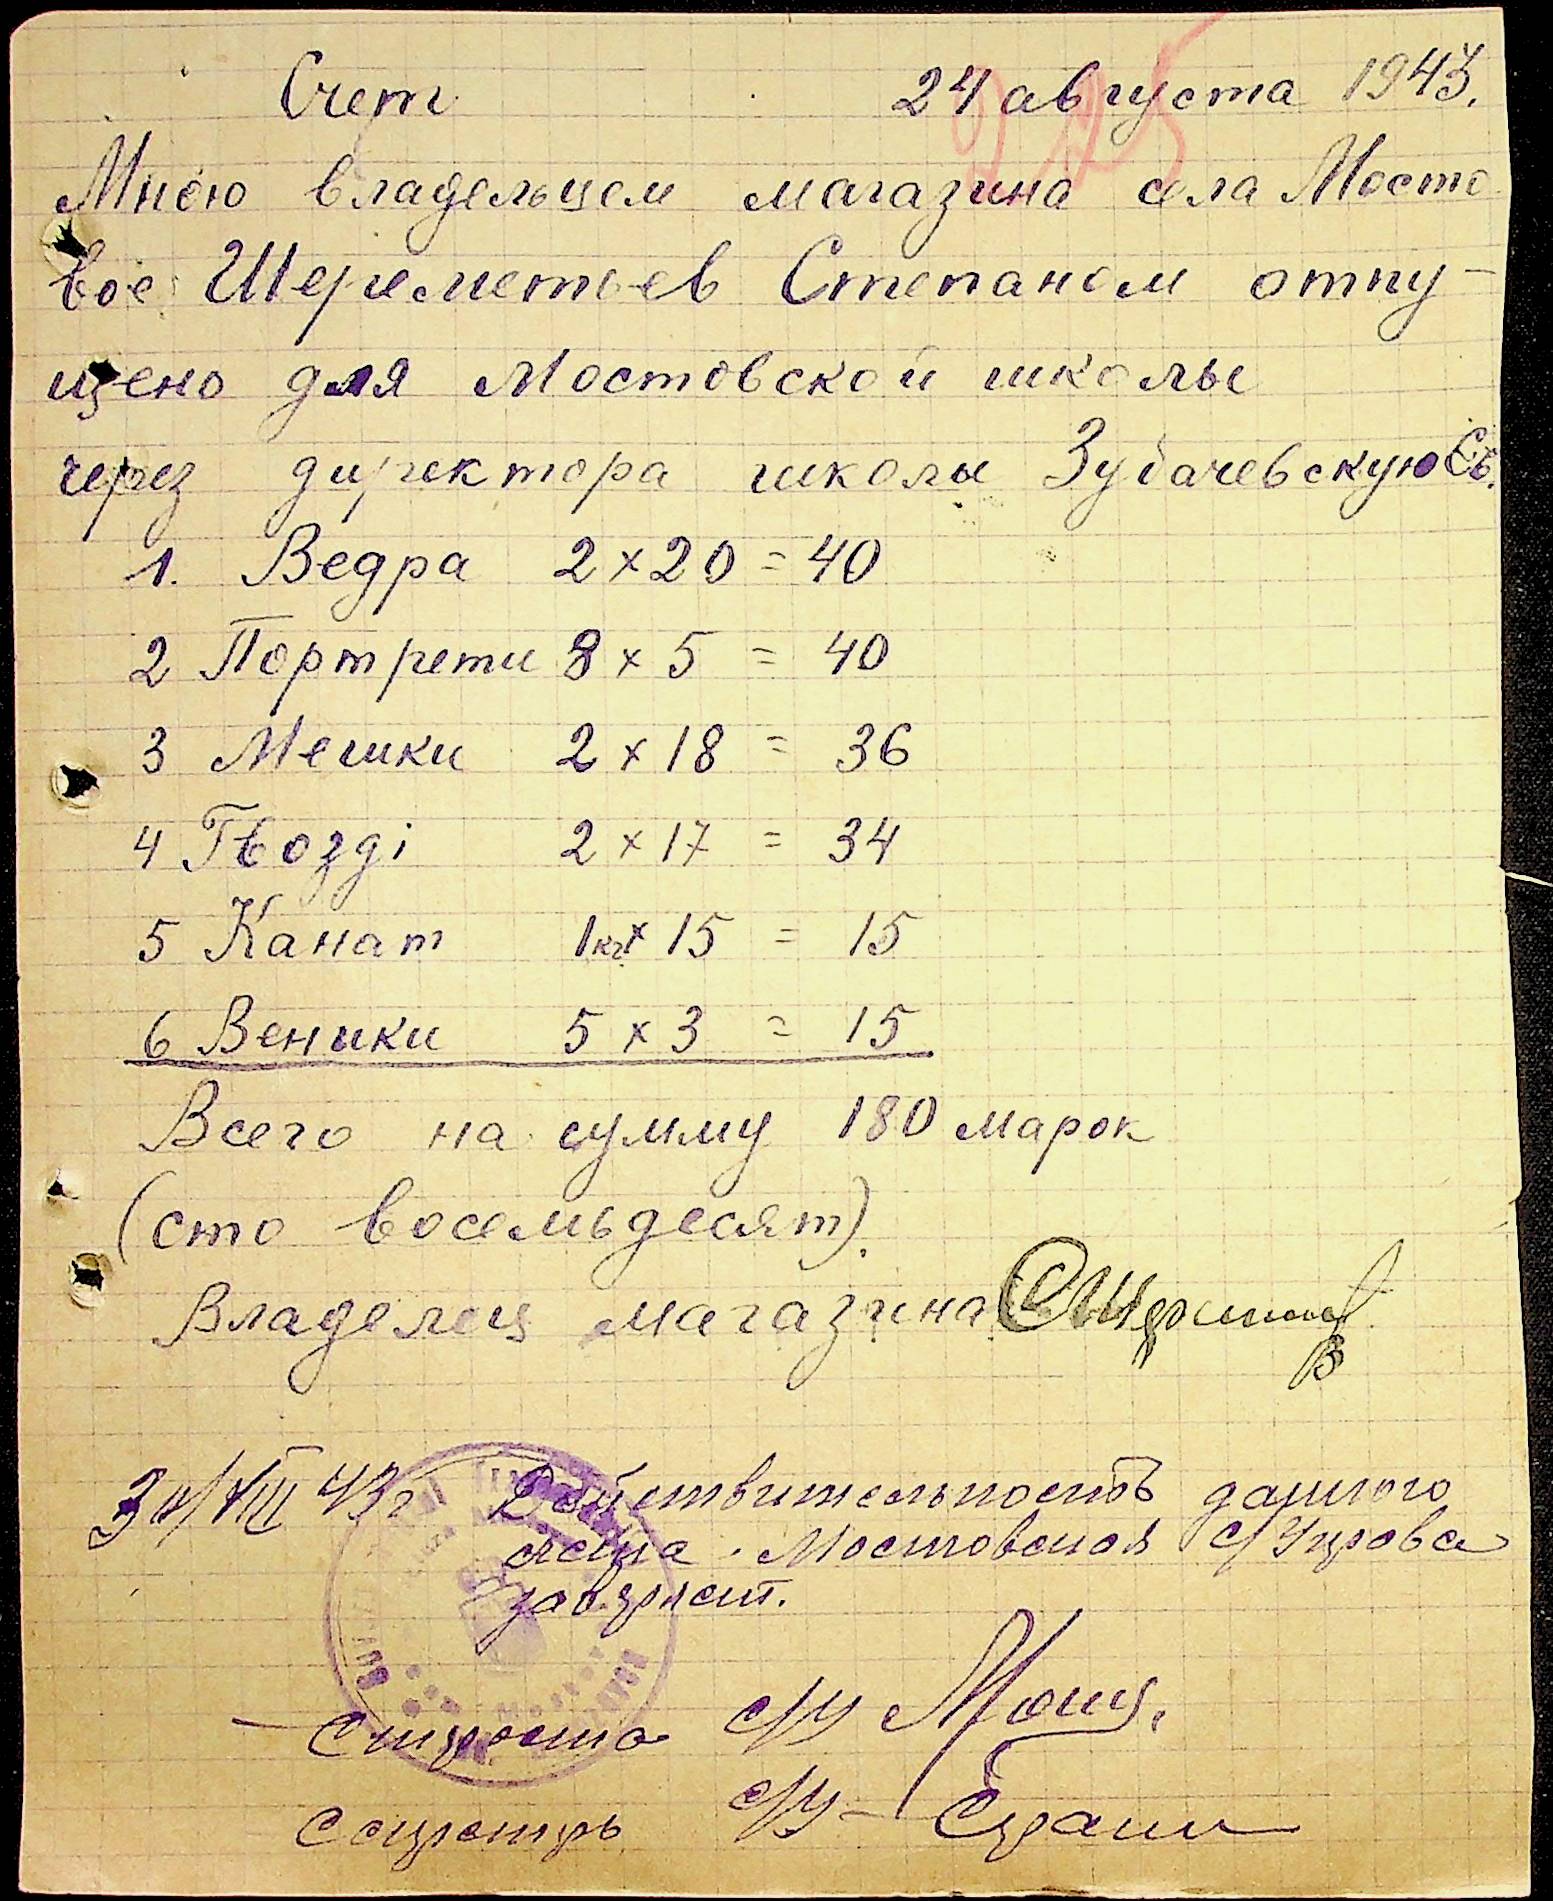 Счет 24 августа 1943.
Мною владельцем магазина села Мосто
вое Шереметьев Степаном отпу-
щено для Мостовской школы
через директора школы Зубачевскую Ев.
1. Ведра 2 × 20 = 40
2 Портрети 8 × 5 = 40
3 Мешки 2 × 18 = 36
4 Гвозді 2 × 17 = 34
5 Канат 1кг × 15 = 15
6 Веники 5 × 3 = 15
Всего на сумму 180 марок
(сто восемьдесят).
Владелец магазина
VIII 43г Действительность данного
счета Мостовская с/Управа
заверяет.
Староста с/у
Секретарь с/у